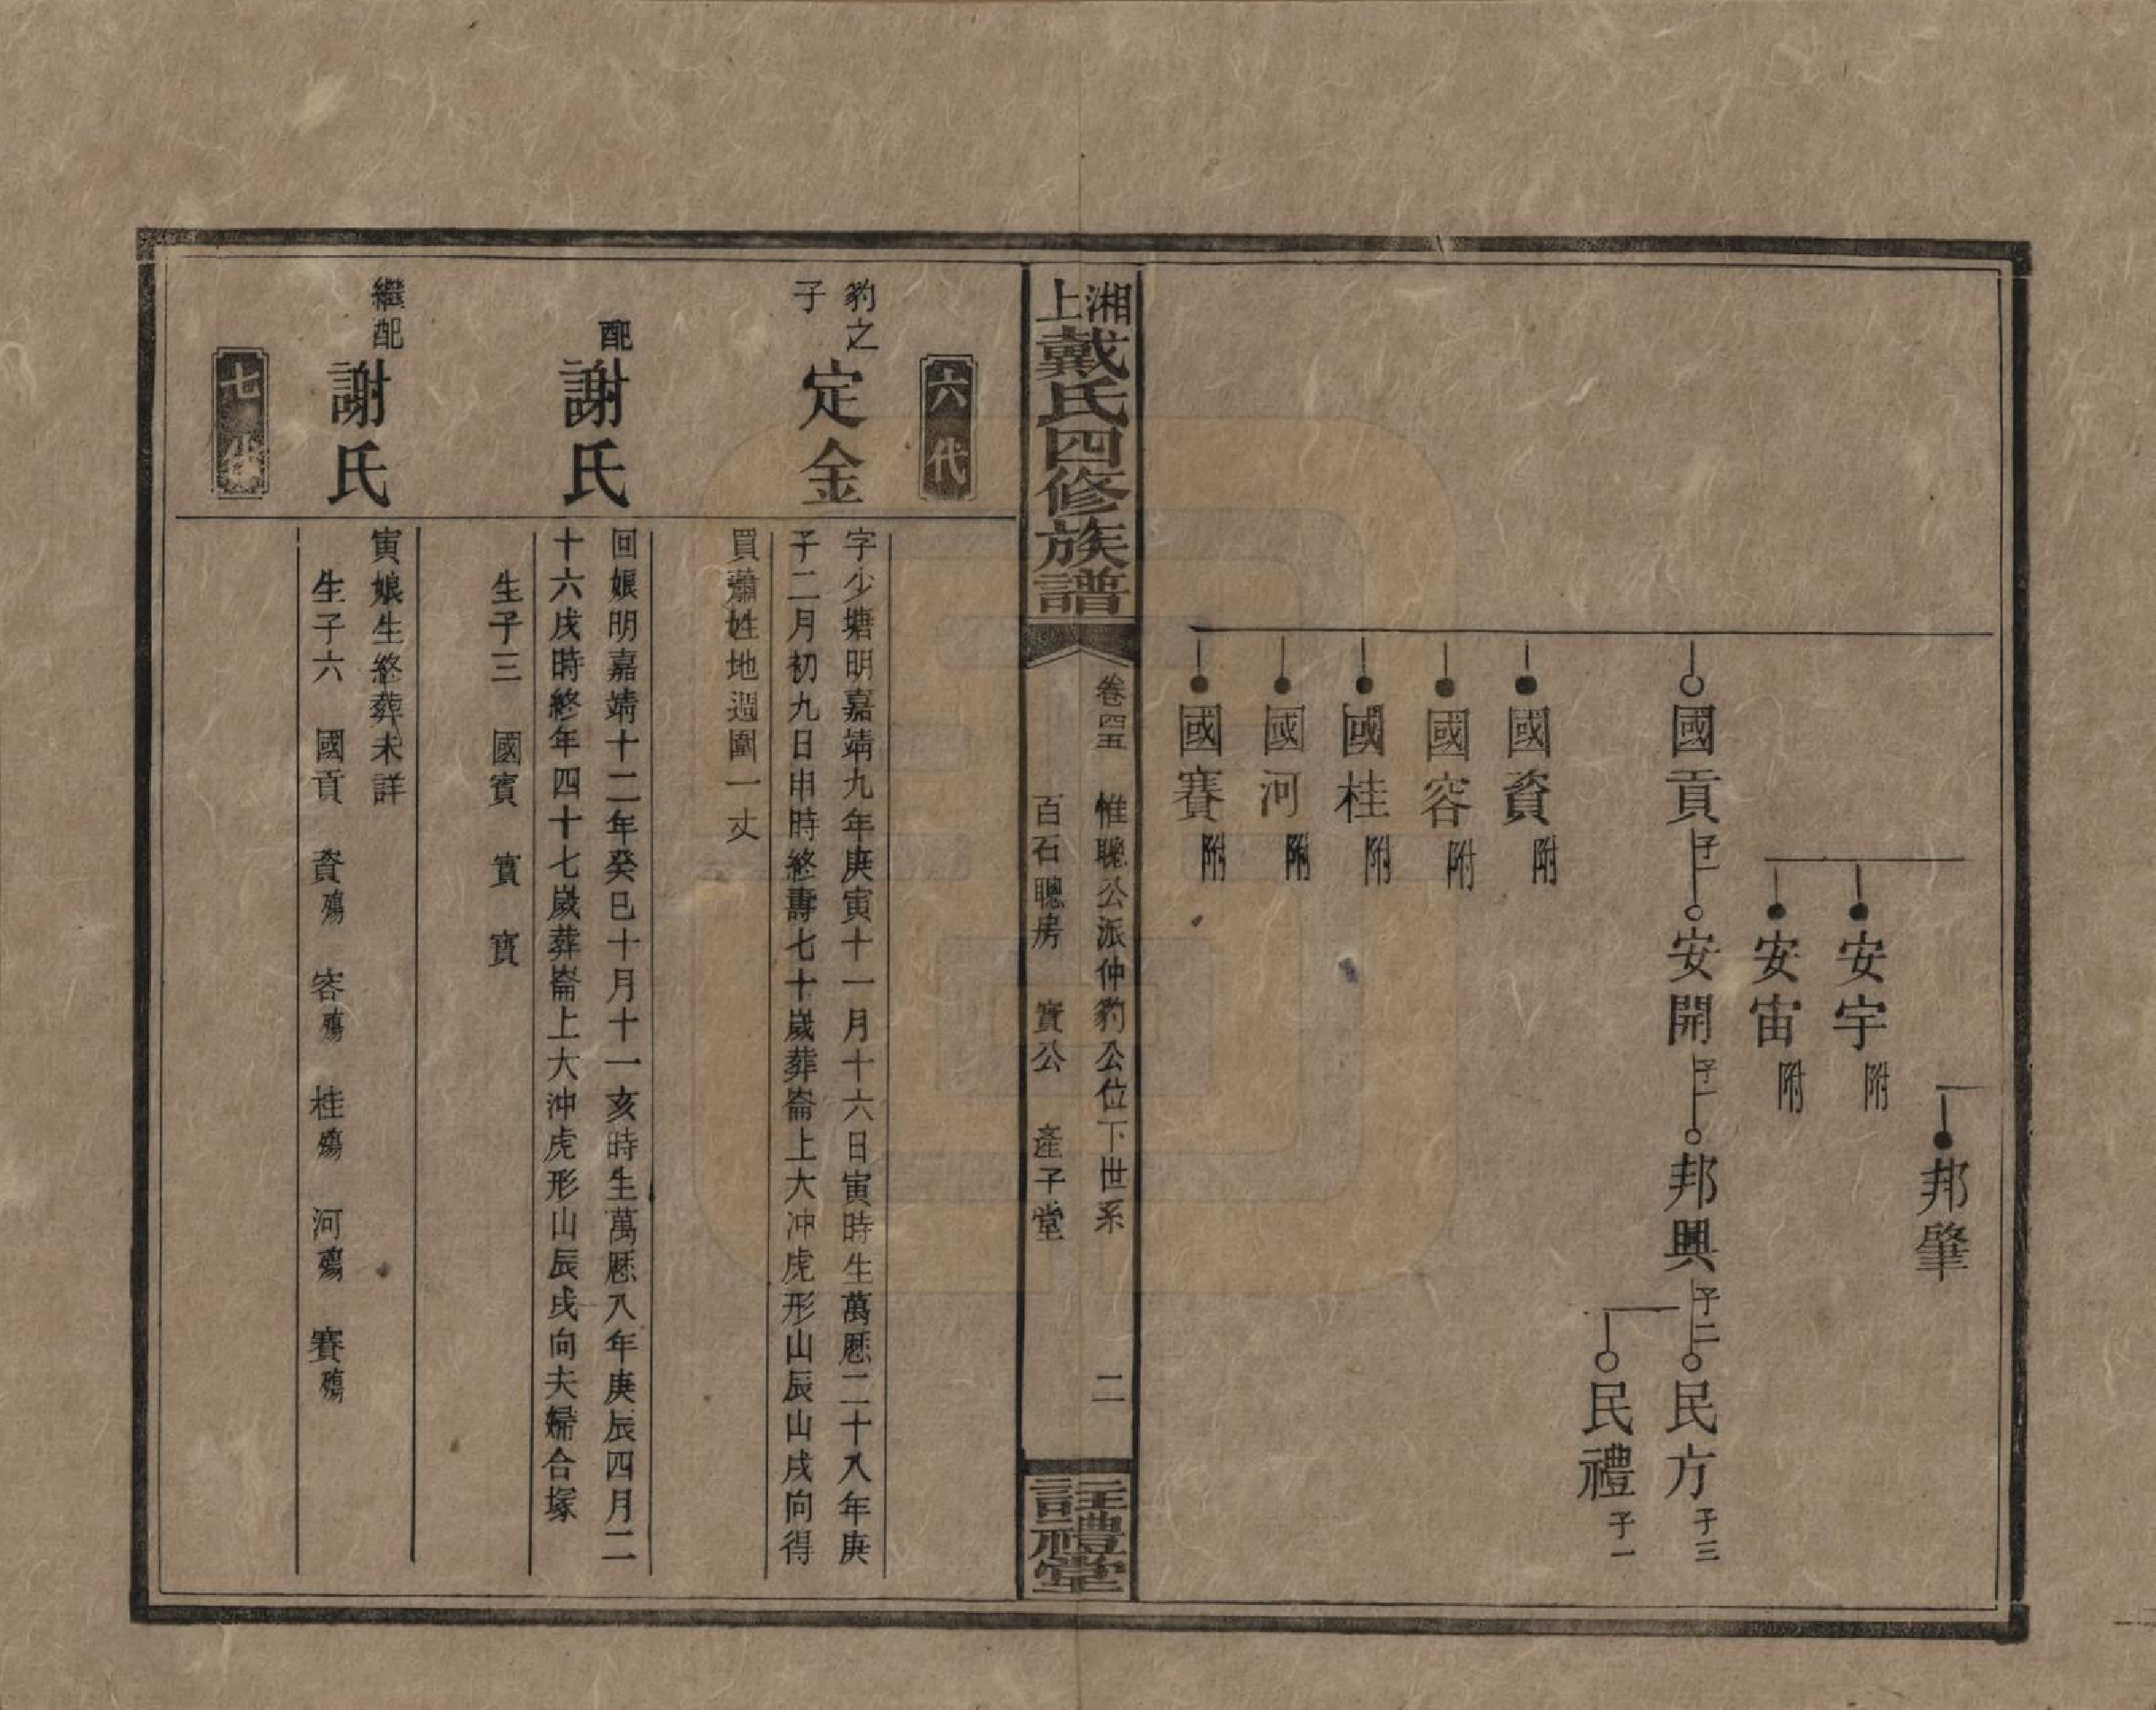 邦肇
安宇 附
安宙 附
國貢 子一 安開 子一 邦興 子二 民方 子三
民禮 子一
國資 附
國容 附
國桂 附
國河 附
國賽 附
湘上戴氏四修族譜
卷四五 惟聰公派仲豹公位下世系 二
百石聰房 寳公 產子堂
註禮堂
六代
豹之子 定金
字少塘明嘉靖九年庚寅十一月十六日寅時生萬厯二十八年庚
子二月初九日申時終壽七十歲葬崙上大冲虎形山辰山戌向得
買蕭姓地週圍一丈
配 謝氏
回娘明嘉靖十二年癸巳十月十一亥時生萬厯八年庚辰四月二
十六戌時終年四十七歲葬崙上大沖虎形山辰戌向夫婦合塚
生子三 國賓 寳 賔
繼配 謝氏
寅娘生終葬未詳
生子六 國貢 資殤 容殤 桂殤 河殤 賽殤
七代